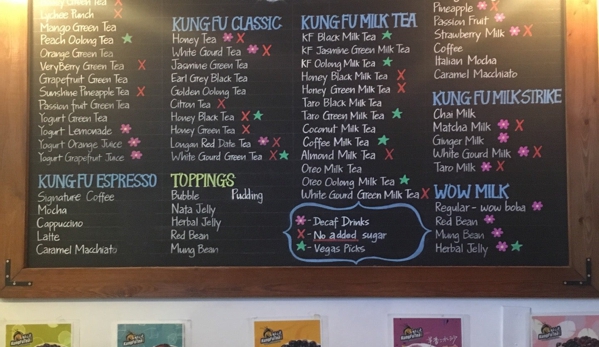 Honey Green Tea
Lychee Punch
Mango Green Tea
Peach Oolong Tea
Orange Green Tea
VeryBerry Green Tea X
Grapefruit Green Tea
Sunshine Pineapple Tea X
Passion fruit Green Tea
Yogurt Green Tea
Yogurt Lemonade
Yogurt Orange Juice
Yogurt Grapefruit Juice
KUNG-FU ESPRESSO
Signature Coffee
Mocha
Cappuccino
Latte
Caramel Macchiato
KUNG-FU CLASSIC
Honey Tea X
White Gourd Tea X
Jasmine Green Tea
Earl Grey Black Tea
Golden Oolong Tea
Citron Tea X
Honey Black Tea X
Honey Green Tea X
Longan Red Date Tea X
White Gourd Green Tea X
TOPPINGS
Bubble Pudding
Nata Jelly
Herbal Jelly
Red Bean
Mung Bean
KUNG FU MILK TEA
KF Black Milk Tea
KF Jasmine Green Milk Tea
KF Oolong Milk Tea
Honey Black Milk Tea X
Honey Green Milk Tea X
Taro Black Milk Tea
Taro Green Milk Tea
Coconut Milk Tea
Coffee Milk Tea
Almond Milk Tea X
Oreo Milk Tea
Oreo Oolong Milk Tea
White Gourd Green Milk Tea X
- Decaf Drinks
X - No added sugar
- Vegas Picks
Pineapple X
Passion Fruit
Strawberry Milk X
Coffee
Italian Mocha
Caramel Macchiato
KUNG FU MILK STRIKE
Chai Milk
Matcha Milk X
Ginger Milk
White Gourd Milk X
Taro Milk X
WOW MILK
Regular - wow boba
Red Bean
Mung Bean
Herbal Jelly